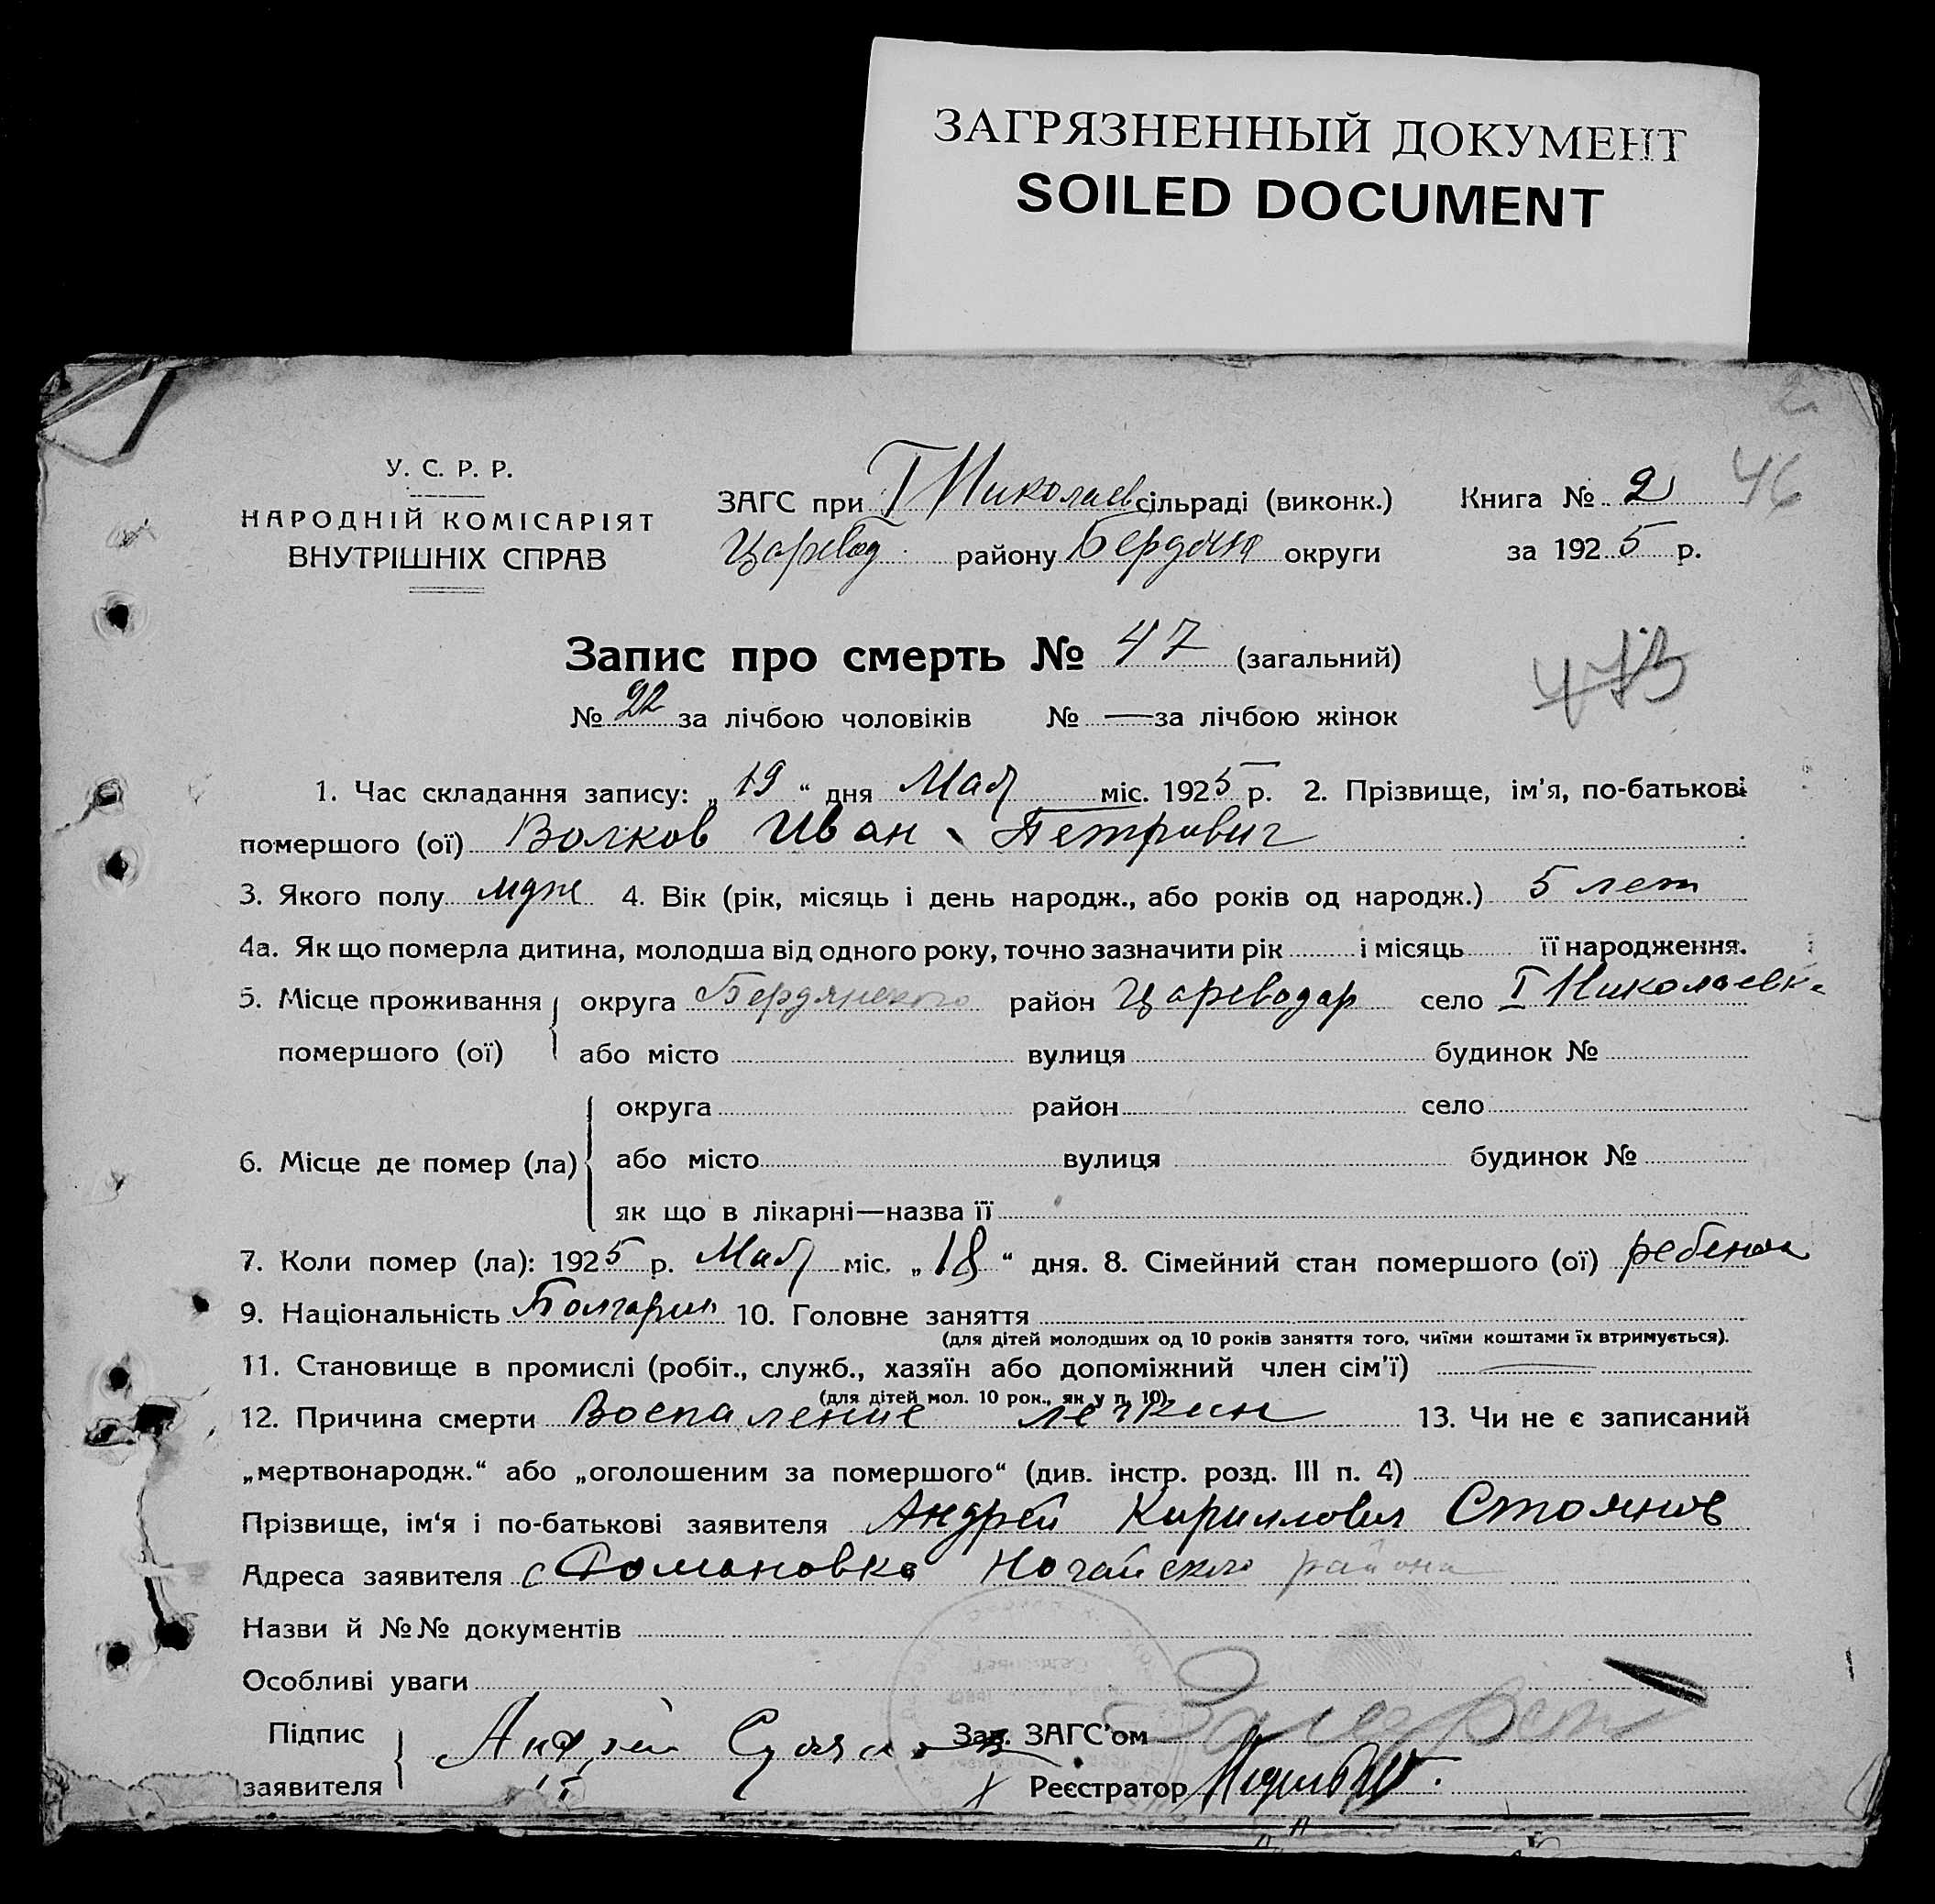 ЗАГРЯЗНЕННЫЙ ДОКУМЕНТ
SOILED DOCUMENT
У. С. Р. Р.
НАРОДНІЙ КОМІСАРІЯТ
ВНУТРІШНІХ СПРАВ
ЗАГС при І Николаев сільраді (виконк.)
Царевод. району Бердянс округи
Книга № 2 46
за 1925 р.
Запис про смерть № 47 (загальний)
№ 22 за лічбою чоловіків № — за лічбою жінок
1. Час складання запису: „ 19 “ дня Мая міс. 1925 р. 2. Прізвище, ім'я, по-батькові
помершого (ої) Волков Иван Петрович
3. Якого полу муж 4. Вік (рік, місяць і день народж., або років од народж.) 5 лет
4а. Як що померла дитина, молодша від одного року, точно зазначити рік і місяць її народження.
5. Місце проживання помершого (ої) округа Бердянского район Цареводар село І Николаевка
або місто вулиця будинок №
6. Місце де помер (ла) округа район село
або місто вулиця будинок №
як що в лікарні—назва її
7. Коли помер (ла): 1925 р. Мая міс. „ 18 “ дня. 8. Сімейний стан помершого (ої) ребенок
9. Національність Болгарин 10. Головне заняття
(для дітей молодших од 10 років заняття того, чиїми коштами їх втримується).
11. Становище в промислі (робіт., служб., хазяїн або допоміжний член сім'ї)
(для дітей мол. 10 рок., як у п. 10).
12. Причина смерти Воспаление легких 13. Чи не є записаний
„мертвонародж.“ або „оголошеним за помершого“ (див. інстр. розд. III п. 4)
Прізвище, ім'я і по-батькові заявителя Андрей Кириллович Стоянов
Адреса заявителя с Романовка Ногайского района
Назви й №№ документів
Особливі уваги
Підпис заявителя Андрей Стоянов
Зав. ЗАГС'ом
Реєстратор